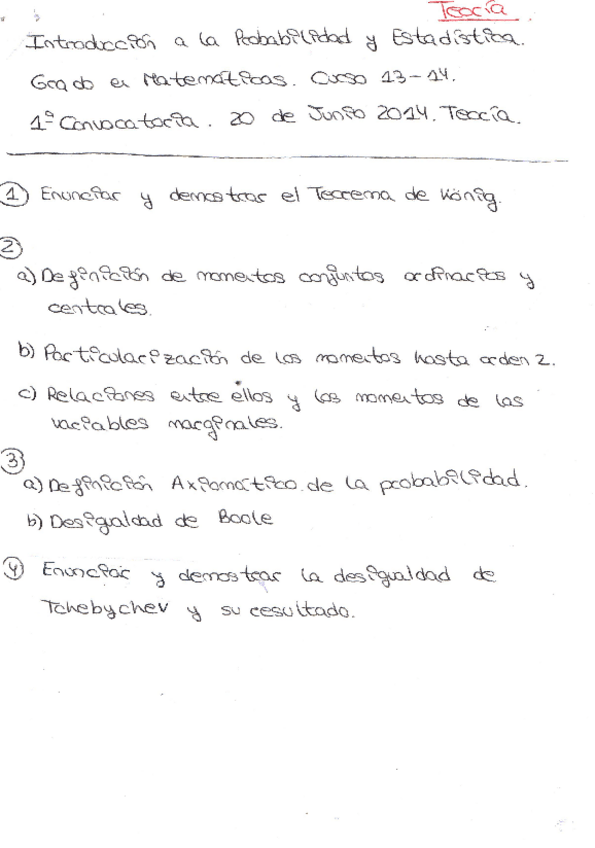 Teoría
Introducción a la Probabilidad y Estadística.
Grado en Matemáticas. Curso 13-14.
1ª Convocatoria. 20 de Junio 2014. Teoría.
1 Enunciar y demostrar el Teorema de König.
2
a) Definición de momentos conjuntos ordinarios y
centrales.
b) Particularización de los momentos hasta orden 2.
c) Relaciones entre ellos y los momentos de las
variables marginales.
3
a) Definición Axiomático de la probabilidad.
b) Desigualdad de Boole
4 Enunciar y demostrar la desigualdad de
Tchebychev y su resultado.